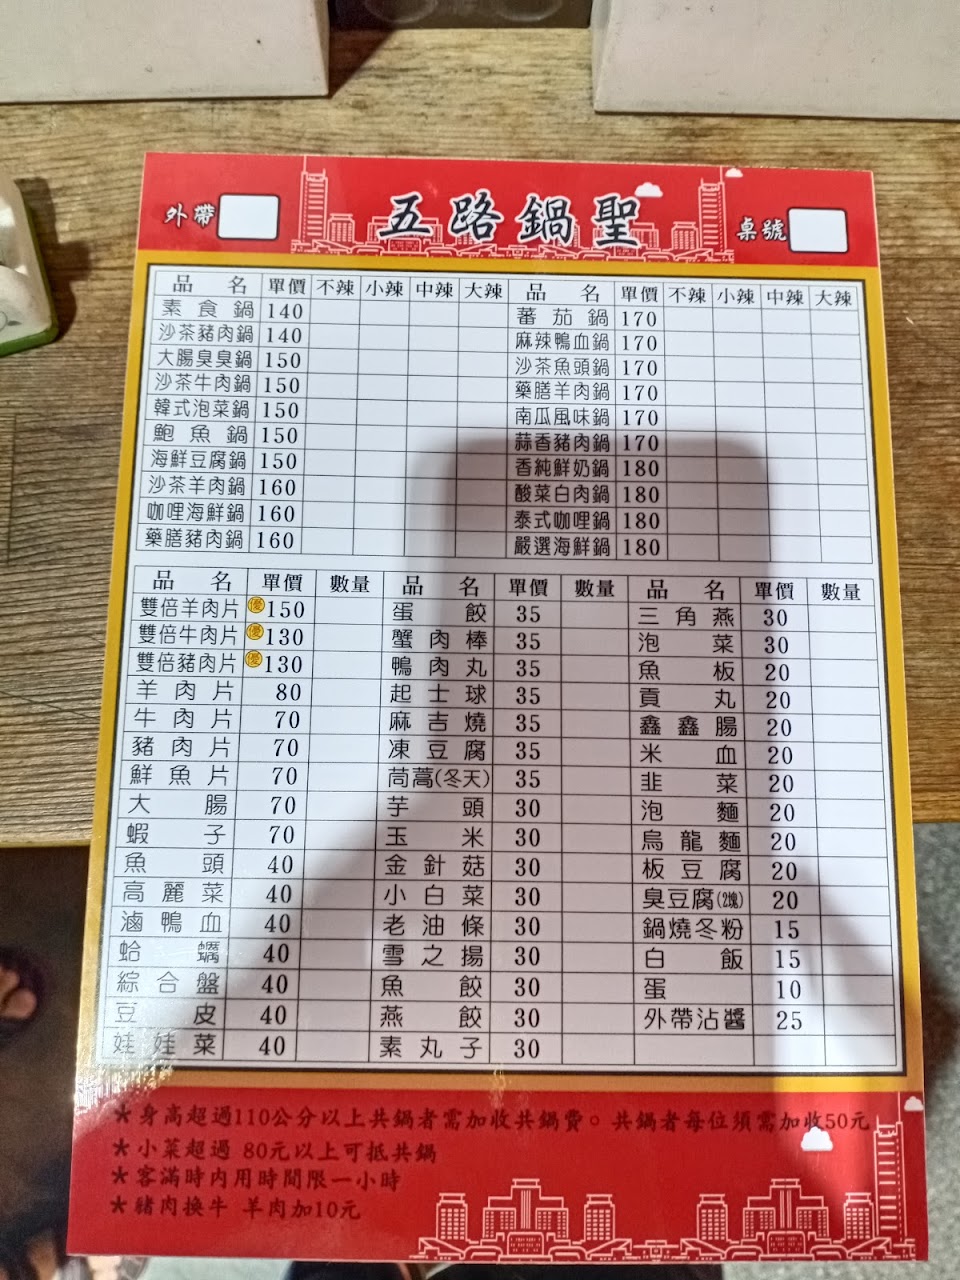 外帶 五路鍋聖 桌號
品名 單價 不辣 小辣 中辣 大辣 品名 單價 不辣 小辣 中辣 大辣
素食鍋 140 蕃茄鍋 170
沙茶豬肉鍋 140 麻辣鴨血鍋 170
大腸臭臭鍋 150 沙茶魚頭鍋 170
沙茶牛肉鍋 150 藥膳羊肉鍋 170
韓式泡菜鍋 150 南瓜風味鍋 170
鮑魚鍋 150 蒜香豬肉鍋 170
海鮮豆腐鍋 150 香純鮮奶鍋 180
沙茶羊肉鍋 160 酸菜白肉鍋 180
咖哩海鮮鍋 160 泰式咖哩鍋 180
藥膳豬肉鍋 160 嚴選海鮮鍋 180
品名 單價 數量 品名 單價 數量 品名 單價 數量
雙倍羊肉片 優150 蛋餃 35 三角燕 30
雙倍牛肉片 優130 蟹肉棒 35 泡菜 30
雙倍豬肉片 優130 鴨肉丸 35 魚板 20
羊肉片 80 起士球 35 貢丸 20
牛肉片 70 麻吉燒 35 鑫鑫腸 20
豬肉片 70 凍豆腐 35 米血 20
鮮魚片 70 茼蒿(冬天) 35 韭菜 20
大腸 70 芋頭 30 泡麵 20
蝦子 70 玉米 30 烏龍麵 20
魚頭 40 金針菇 30 板豆腐 20
高麗菜 40 小白菜 30 臭豆腐(2塊) 20
滷鴨血 40 老油條 30 鍋燒冬粉 15
蛤蠣 40 雪之揚 30 白飯 15
綜合盤 40 魚餃 30 蛋 10
豆皮 40 燕餃 30 外帶沾醬 25
娃娃菜 40 素丸子 30
＊身高超過110公分以上共鍋者需加收共鍋費。共鍋者每位須需加收50元
＊小菜超過 80元以上可抵共鍋
＊客滿時內用時間限一小時
＊豬肉換牛 羊肉加10元